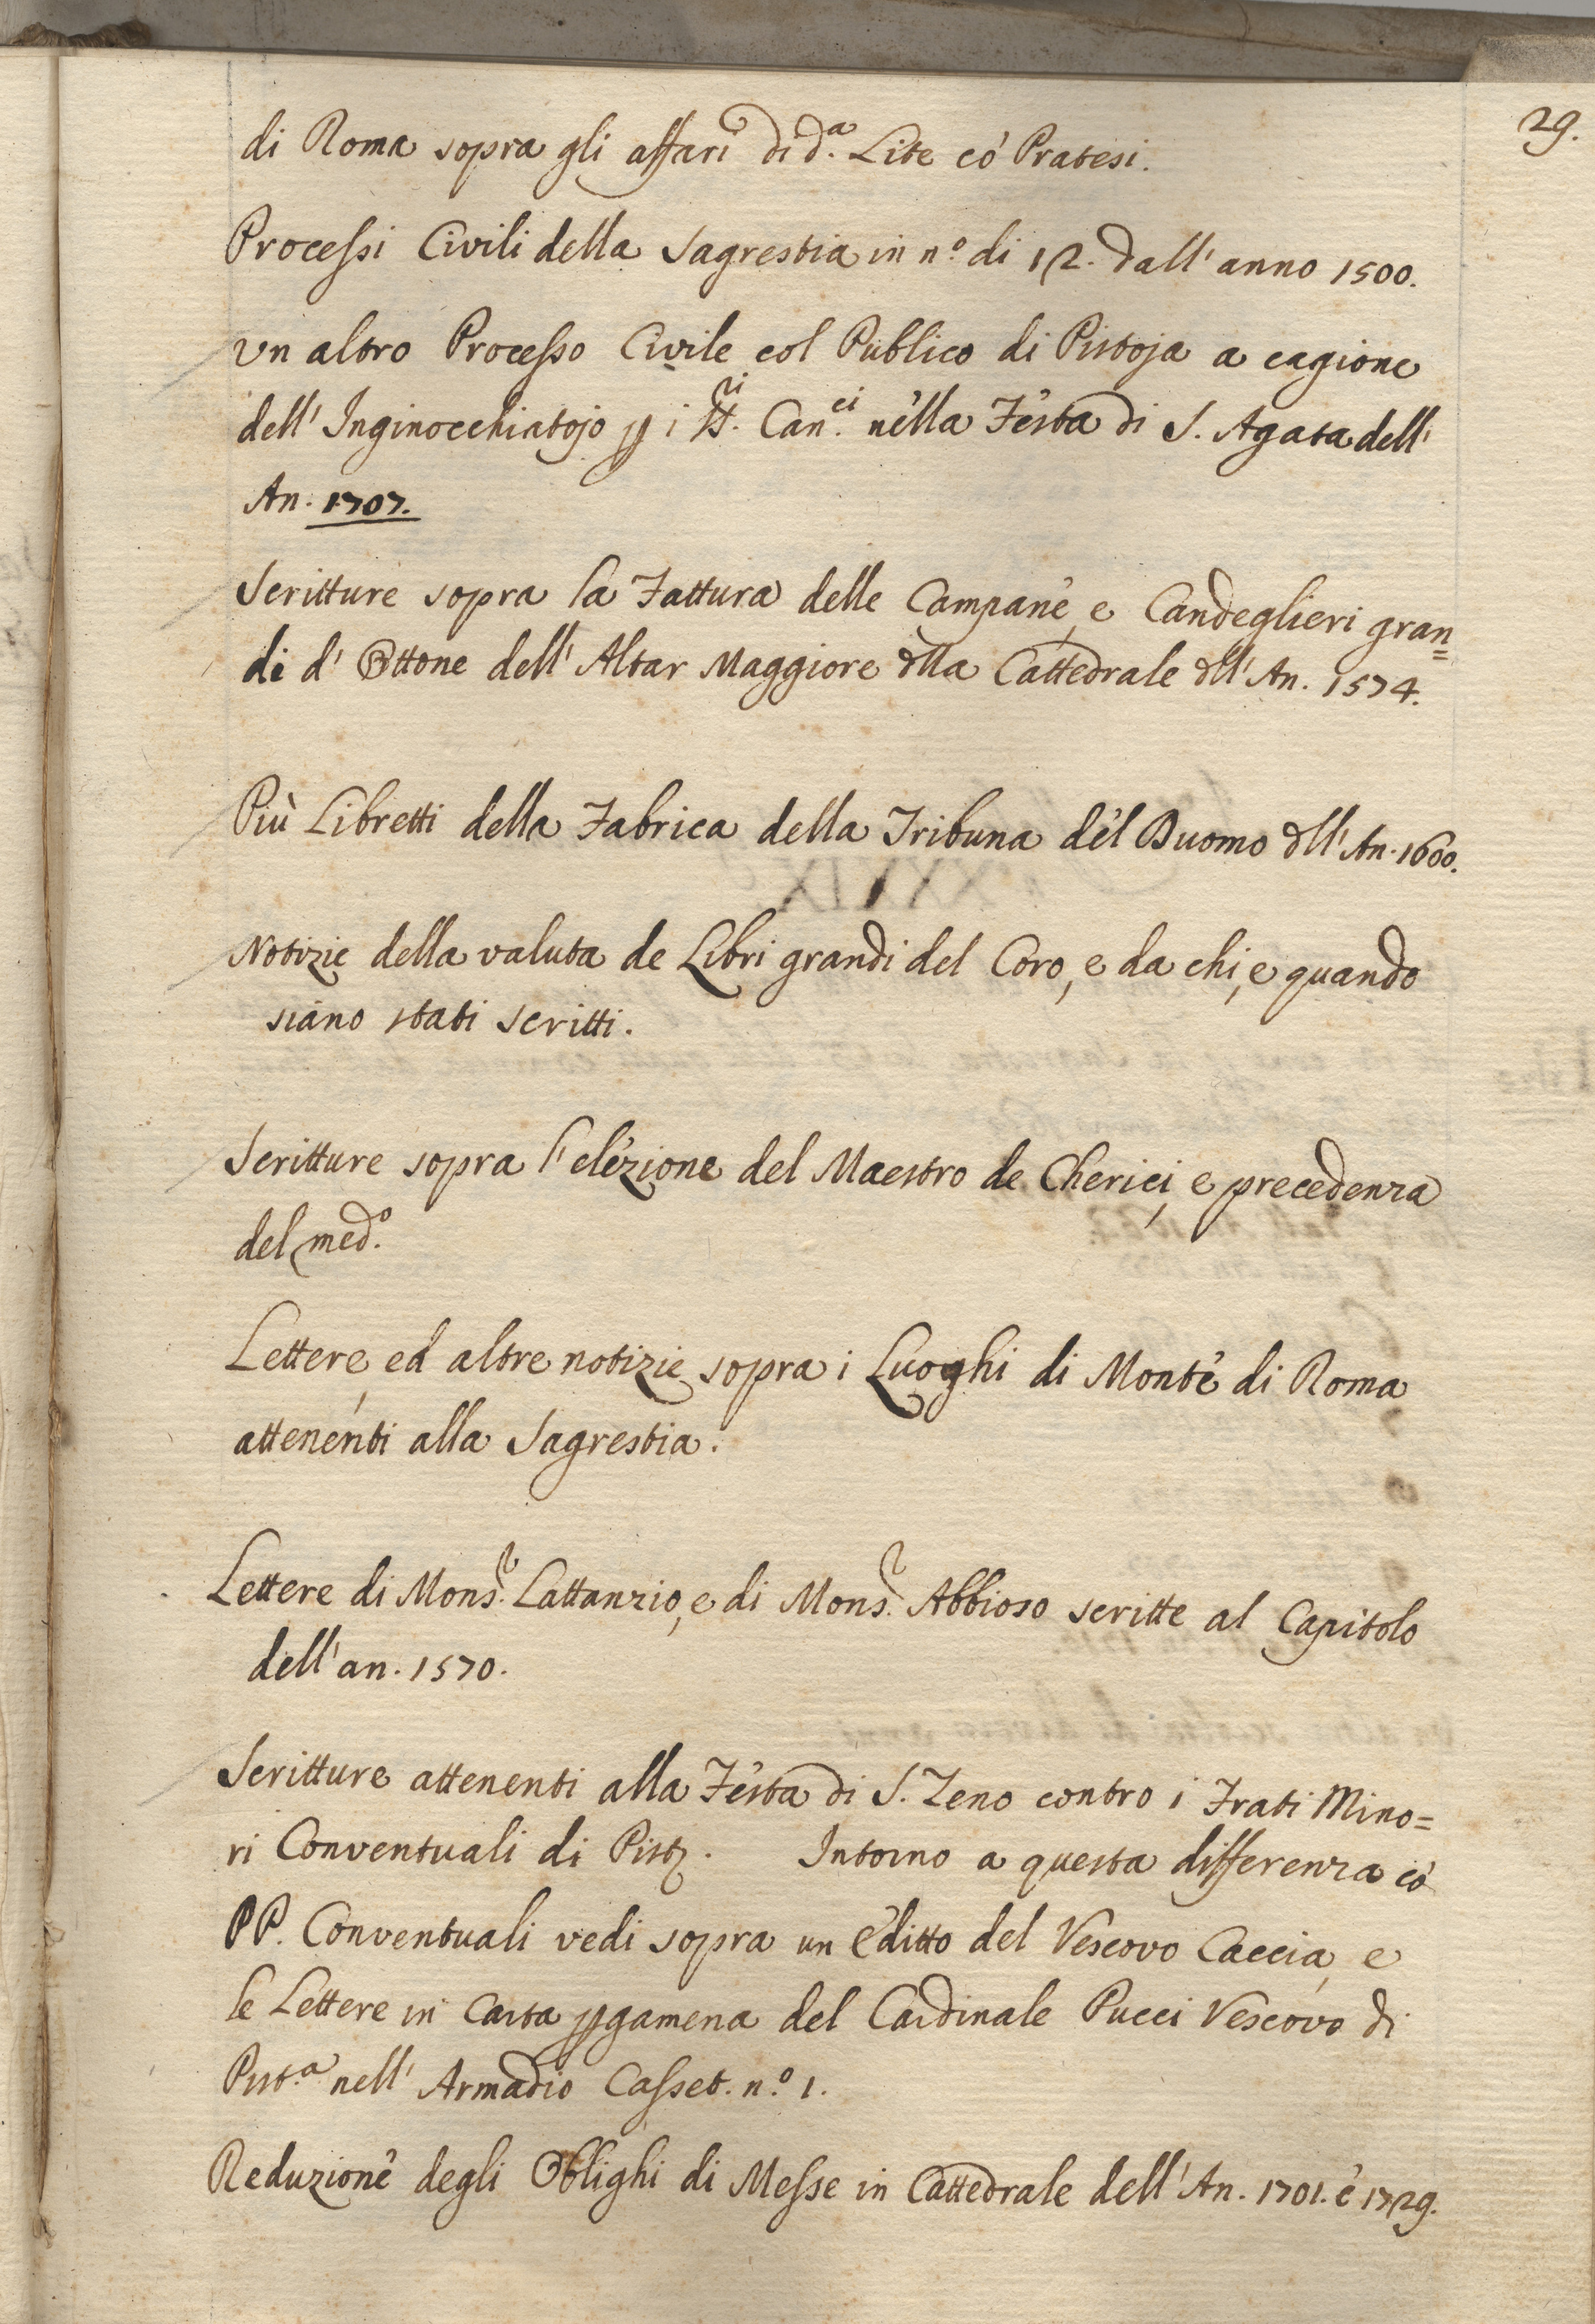 29.
di Roma sopra gli affari di d.ª Lite có Pratesi.
Processi Civili della Sagrestia in n.º di 12. dall' anno 1500.
Vn altro Processo Civile col Publico di Pistoja a cagione
dell' Inginocchiatojo p i SS.ri Can.ci nella Festa di S. Agata dell'
An. 1707.
Scritture sopra la Fattura delle Campane, e Candeglieri gran=
di d' Ottone dell' Altar Maggiore dlla Cattedrale dll' An. 1574.
Più Libretti della Fabrica della Tribuna del Duomo dll' An. 1600.
Notizie della valuta de Libri grandi del Coro, e da chi, e quando
siano stati scritti.
Scritture sopra l' elezione del Maestro de Cherici, e precedenza
del med.º
Lettere, ed altre notizie sopra i Luoghi di Monte di Roma
attenenti alla Sagrestia.
Lettere di Mons.r Lattanzio, e di Mons.r Abbioso scritte al Capitolo
dell' an. 1570.
Scritture attenenti alla Festa di S. Zeno contro i Frati Mino=
ri Conventuali di Pist. Intorno a questa differenza có
PP. Conventuali vedi sopra un Editto del Vescovo Caccia, e
le Lettere in Carta pgamena del Cardinale Pucci Vescovo di
Pist.ª nell' Armadio Casset. n.º 1.
Reduzione degli Oblighi di Messe in Cattedrale dell' An. 1701. e 1729.